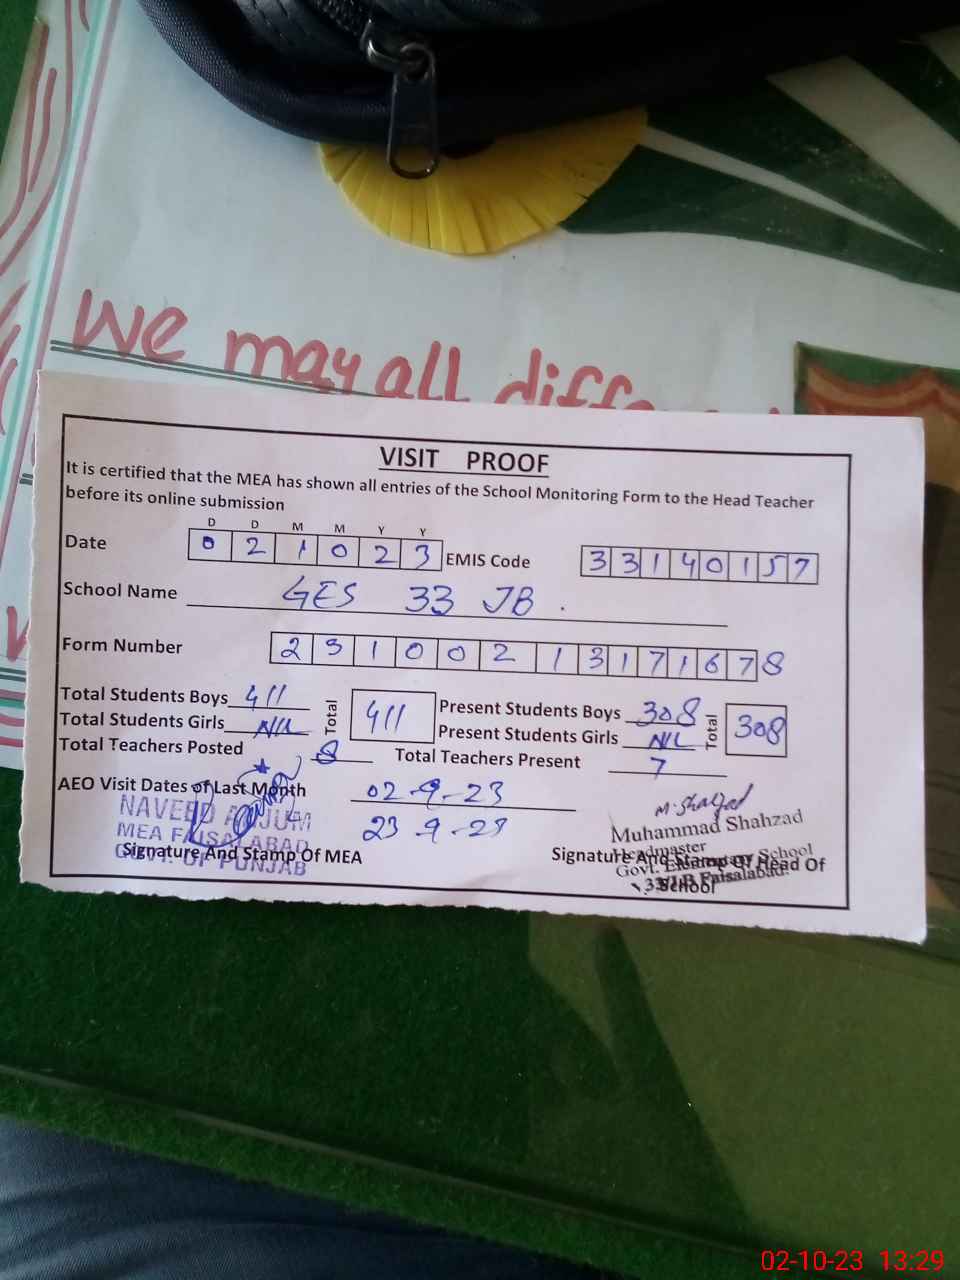 we may all
VISIT PROOF
It is certified that the MEA has shown all entries of the School Monitoring Form to the Head Teacher
before its online submission
D D M M Y Y
Date 0 2 1 0 2 3 EMIS Code 3 3 1 4 0 1 5 7
School Name GES 33 JB .
Form Number 2 3 1 0 0 2 1 3 1 7 1 6 7 8
Total Students Boys 411 Total 411 Present Students Boys 308 Total 308
Total Students Girls NIL Present Students Girls NIL
Total Teachers Posted 8 Total Teachers Present 7
AEO Visit Dates of Last Month 02-9-23
23-9-23
NAVEED ANJUM
MEA FAISALABAD
GOVT. OF PUNJAB
Signature And Stamp Of MEA
M. Shahzad
Muhammad Shahzad
Headmaster
Govt. Elementary School
33/J.B Faisalabad.
Signature And Stamp Of Head Of
School
02-10-23 13:29